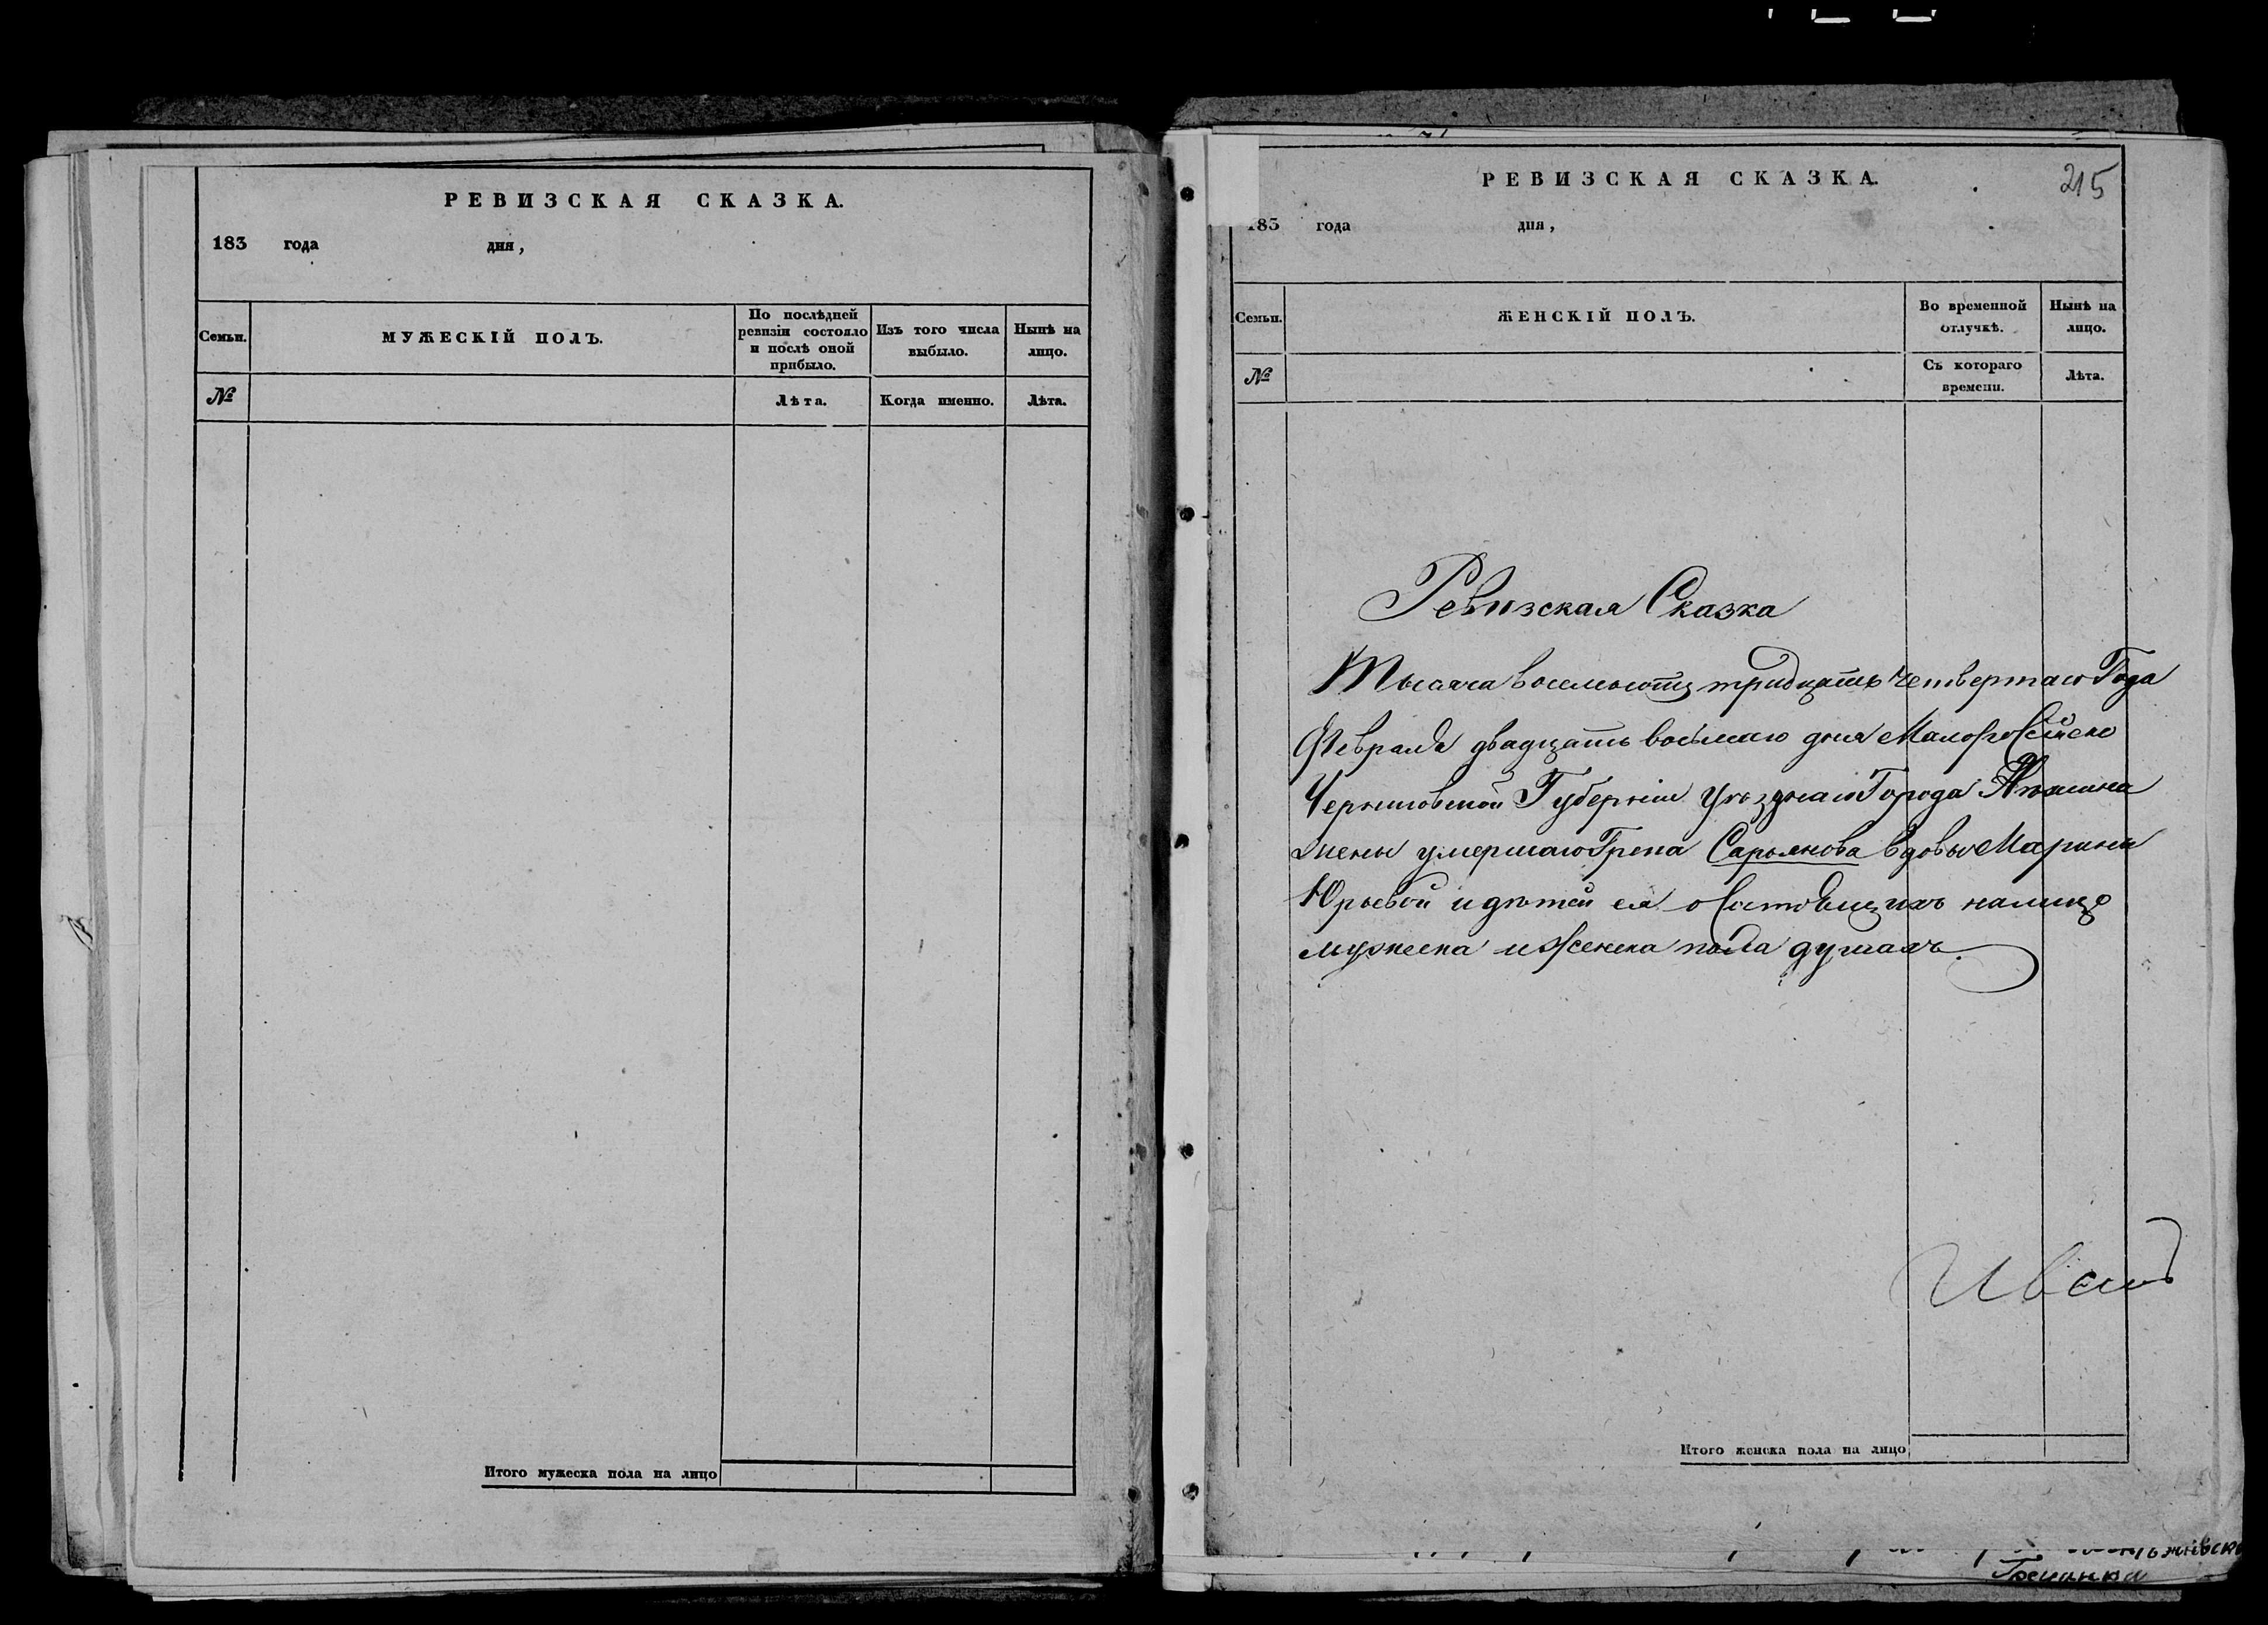 РЕВИЗСКАЯ СКАЗКА.
183 года дня,
Семьи.
МУЖЕСКІЙ ПОЛЪ.
По послѣдней ревизіи состояло и послѣ оной прибыло.
Изъ того числа выбыло.
Нынѣ на лицо.
№
Лѣта.
Когда именно.
Лѣта.
Итого мужеска пола на лицо
215
РЕВИЗСКАЯ СКАЗКА.
183 года дня,
Семьи.
ЖЕНСКІЙ ПОЛЪ.
Во временной отлучкѣ.
Нынѣ на лицо.
№
Съ котораго времени.
Лѣта.
Ревизская Сказка
Тысяча восемьсотъ тридцать четвертаго Года
Февраля двадцать восьмаго дня Малоросійско
Черниговской Губерніи Уѣзднаго Города Нѣжина
жены умершаго Грека Сарьянова вдовы Марины
Юрьевой и дѣтей ея о состоящихъ налицо
мужеска и женска пола душахъ.
Иванъ
Итого женска пола на лицо
Гречанка